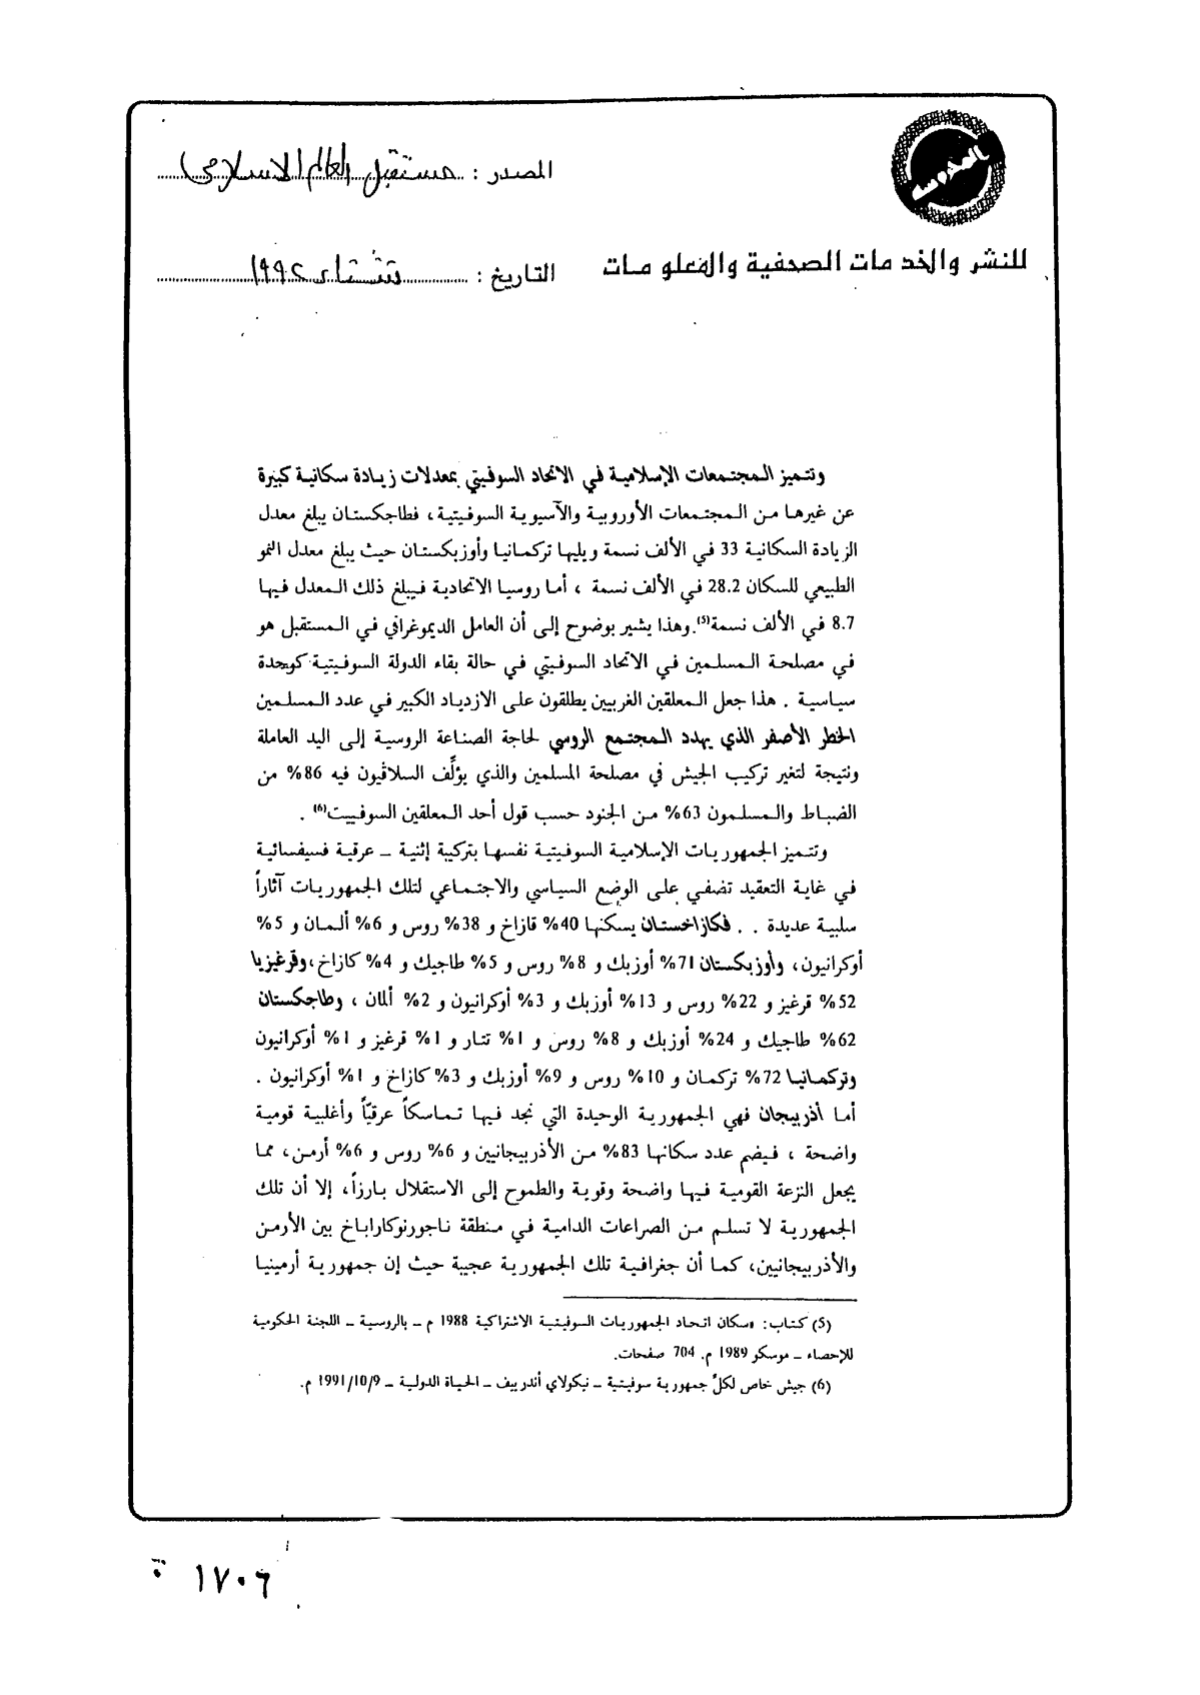 المحروسة
المصدر : مستقبل العالم الاسلامى
للنشر والخدمات الصحفية والمعلومات
التاريخ : شتاء ١٩٩٢
وتتميز المجتمعات الإسلامية في الاتحاد السوفيتي بمعدلات زيادة سكانية كبيرة
عن غيرها من المجتمعات الأوروبية والآسيوية السوفيتية، فطاجكستان يبلغ معدل
الزيادة السكانية 33 في الألف نسمة ويليها تركمانيا وأوزبكستان حيث يبلغ معدل النمو
الطبيعي للسكان 28.2 في الألف نسمة ، أما روسيا الاتحادية فيبلغ ذلك المعدل فيها
8.7 في الألف نسمة(5). وهذا يشير بوضوح إلى أن العامل الديموغرافي في المستقبل هو
في مصلحة المسلمين في الاتحاد السوفيتي في حالة بقاء الدولة السوفيتية كوحدة
سياسية . هذا جعل المعلقين الغربيين يطلقون على الازدياد الكبير في عدد المسلمين
الخطر الأصفر الذي يهدد المجتمع الروسي لحاجة الصناعة الروسية إلى اليد العاملة
ونتيجة لتغير تركيب الجيش في مصلحة المسلمين والذي يؤلِّف السلاڤيون فيه 86% من
الضباط والمسلمون 63% من الجنود حسب قول أحد المعلقين السوفييت(6) .
وتتميز الجمهوريات الإسلامية السوفيتية نفسها بتركيبة إثنية – عرقية فسيفسائية
في غاية التعقيد تضفي على الوضع السياسي والاجتماعي لتلك الجمهوريات آثاراً
سلبية عديدة . . فكازاخستان يسكنها 40% قازاخ و 38% روس و 6% ألمان و 5%
أوكرانيون، وأوزبكستان 71% أوزبك و 8% روس و 5% طاجيك و 4% كازاخ، وقرغيزيا
52% قرغيز و 22% روس و 13% أوزبك و 3% أوكرانيون و 2% ألمان ، وطاجكستان
62% طاجيك و 24% أوزبك و 8% روس و 1% تتار و 1% قرغيز و 1% أوكرانيون
وتركمانيا 72% تركمان و 10% روس و 9% أوزبك و 3% كازاخ و 1% أوكرانيون .
أما أذربيجان فهي الجمهورية الوحيدة التي نجد فيها تماسكاً عرقيّاً وأغلبية قومية
واضحة ، فيضم عدد سكانها 83% من الأذربيجانيين و 6% روس و 6% أرمن، مما
يجعل النزعة القومية فيها واضحة وقوية والطموح إلى الاستقلال بارزاً، إلا أن تلك
الجمهورية لا تسلم من الصراعات الدامية في منطقة ناجورنوكاراباخ بين الأرمن
والأذربيجانيين، كما أن جغرافية تلك الجمهورية عجيبة حيث إن جمهورية أرمينيا
(5) كتاب: «سكان اتحاد الجمهوريات السوفيتية الاشتراكية 1988 م – بالروسية – اللجنة الحكومية
للإحصاء – موسكو 1989 م. 704 صفحات.
(6) جيش خاص لكلِّ جمهورية سوفيتية – نيكولاي أندرييف – الحياة الدولية – 1991/10/9 م.
١٧٠٦